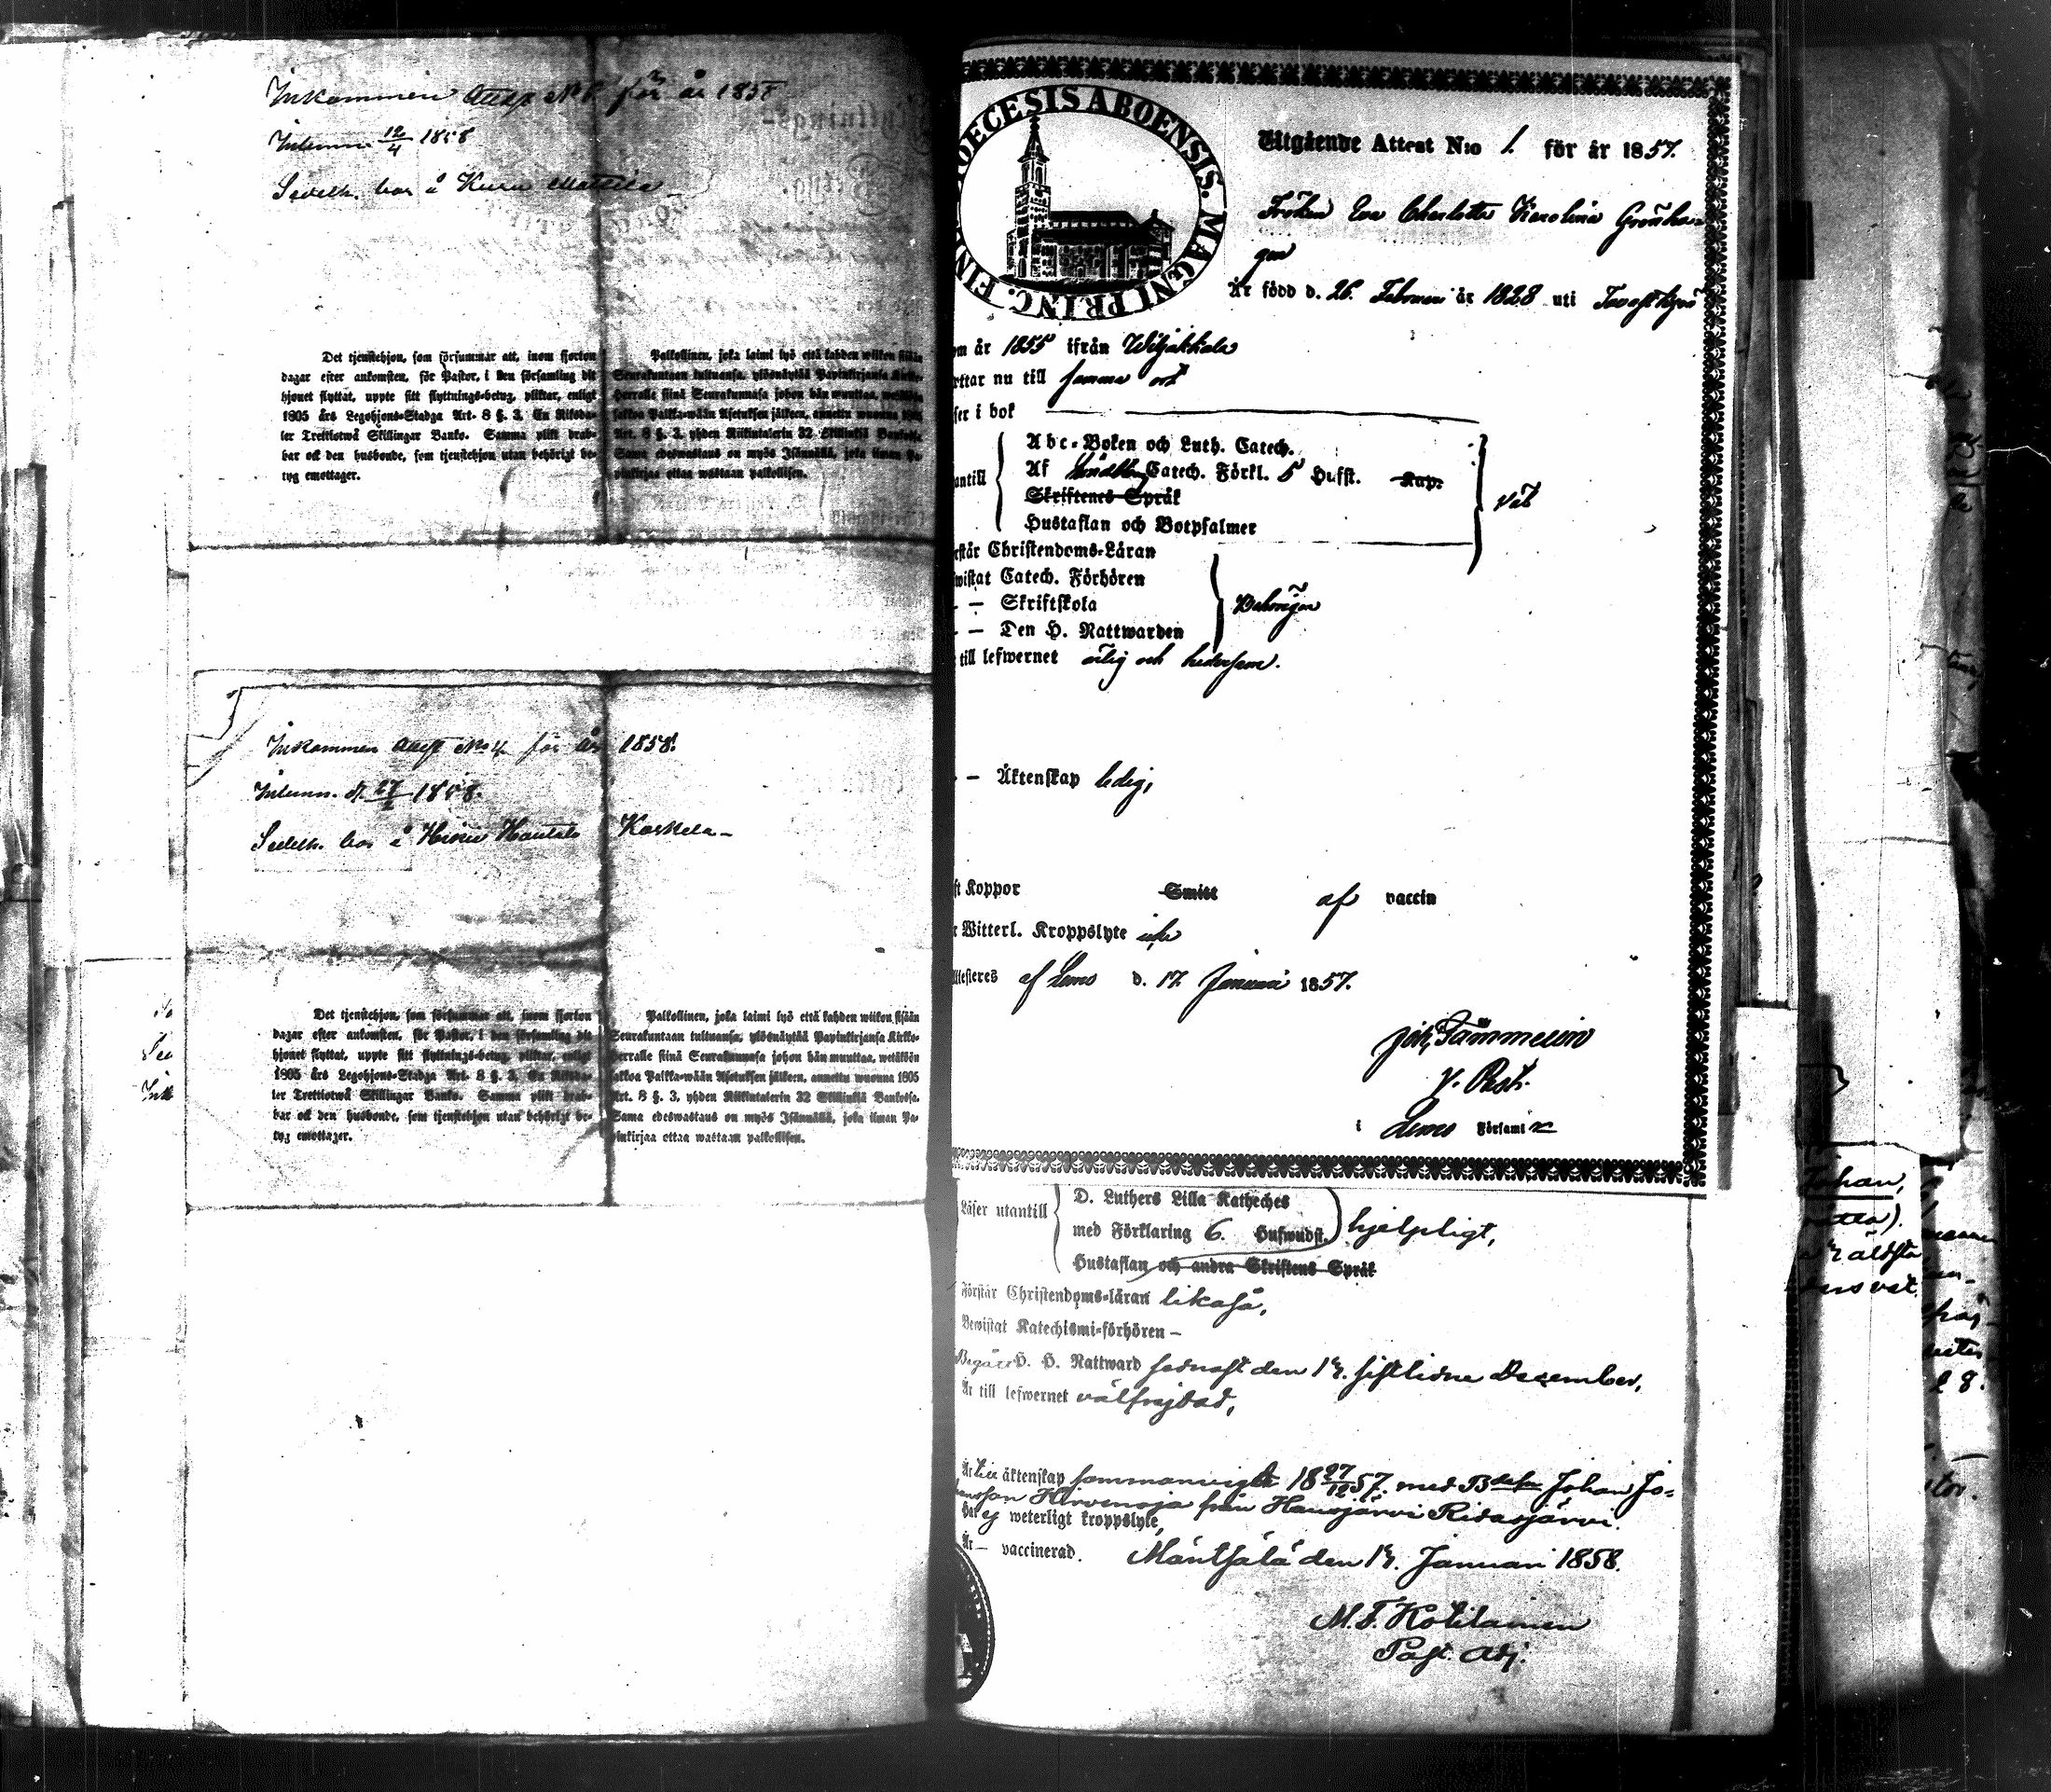 Inkommen Attest No för år 185
Inlemn. 12/4 1858
Sedelh. bor å Kuru Mattila
Det tjenstehjon, som försummar att, inom fjorton
dagar efter ankomsten, för Pastor, i den församling dit
hjonet flyttat, uppte sitt flyttnings-betyg, pliktar, enligt
1805 års Legohjons-Stadga Art. 8 §. 3. En Riksda-
ler Trettiotwå Skillingar Banko. Samma plikt drab-
bar ock den husbonde, som tjenstehjon utan behörigt be-
tyg emottager.
Palkollinen, joka laimi lyö että kahden wiikon sisään
Seurakuntaan tultuansa, ylösnäytää Papinkirjansa Kirkko-
herralle siinä Seurakunnasa johon hän muuttaa, wetäkön
sakkoa Palkka-wään Asetuksen jälkeen, annettu wuonna 1805
Art. 8 §. 3. yhden Riikintalerin 32 Skillinkiä Bankossa.
Sama edeswastaus on myös Isännällä, joka ilman Pa-
pinkirjaa ottaa wastaan palkollisen.
Inkommen Attest No 4 för år 1858.
Inlemn. d. 27 1858.
Sedelh. bor å Koskela
Det tjenstehjon, som försummar att, inom fjorton
dagar efter ankomsten, för Pastor, i den församling dit
hjonet flyttat, uppte sitt flyttnings-betyg, pliktar, enligt
1805 års Legohjons-Stadga Art. 8 §. 3. En Riksda-
ler Trettiotwå Skillingar Banko. Samma plikt drab-
bar ock den husbonde, som tjenstehjon utan behörigt be-
tyg emottager.
Palkollinen, joka laimi lyö että kahden wiikon sisään
Seurakuntaan tultuansa, ylösnäytää Papinkirjansa Kirkko-
herralle siinä Seurakunnasa johon hän muuttaa, wetäkön
sakkoa Palkka-wään Asetuksen jälkeen, annettu wuonna 1805
Art. 8 §. 3. yhden Riikintalerin 32 Skillinkiä Bankossa.
Sama edeswastaus on myös Isännällä, joka ilman Pa-
pinkirjaa ottaa wastaan palkollisen.
DIOECESIS ABOENSIS. MAGNI PRINC. FIN
Utgående Attest N:o 1. för år 1857.
Fröken Eva Charlotta Karolina Grönha-
gen
Är född d. 26. Februari år 1828 uti Tavastkyrö
om år 1855 ifrån Wiljakkala
ttar nu till samma ort
ser i bok
antill
Abc-Boken och Luth. Catech.
Af Catech. Förkl. 5 Hufst. Kap.
Skriftenes Språk
Hustaflan och Botpsalmer
väl
rstår Christendoms-Läran
wistat Catech. Förhören
- - Skriftskola
- - Den H. Nattwarden
Behörigen
till lefwernet ärlig och hedersam.
- - Äktenskap ledig,
ft Koppor Smitt af vaccin
Witterl. Kroppslyte icke
ttesteres af Lemo d. 17. Januari 1857.
V. Past.
i Lemo Församl
Läser utantill
D. Luthers Lilla Katheches
med Förklaring 6. Hufwudst.
Hustaflan och andra Skriftens Språk
hjelpligt,
Förstår Christendoms-läran likaså,
Bewistat Katechismi-förhören -
Begått H. H. Nattward sednast den 14. sistlidne December,
Är till lefwernet välfrejdad,
Är till äktenskap sammanvigd 18 27/12 57. med Bdesn Johan Jo-
hansson Hirvenoja från Hausjärvi Ridasjärvi.
Har ej weterligt kroppslyte,
Är - vaccinerad. Mäntsälä den 14. Januari 1858.
M. F. Kotilainen
Past. Adj.
Johan,
äldsta
28.